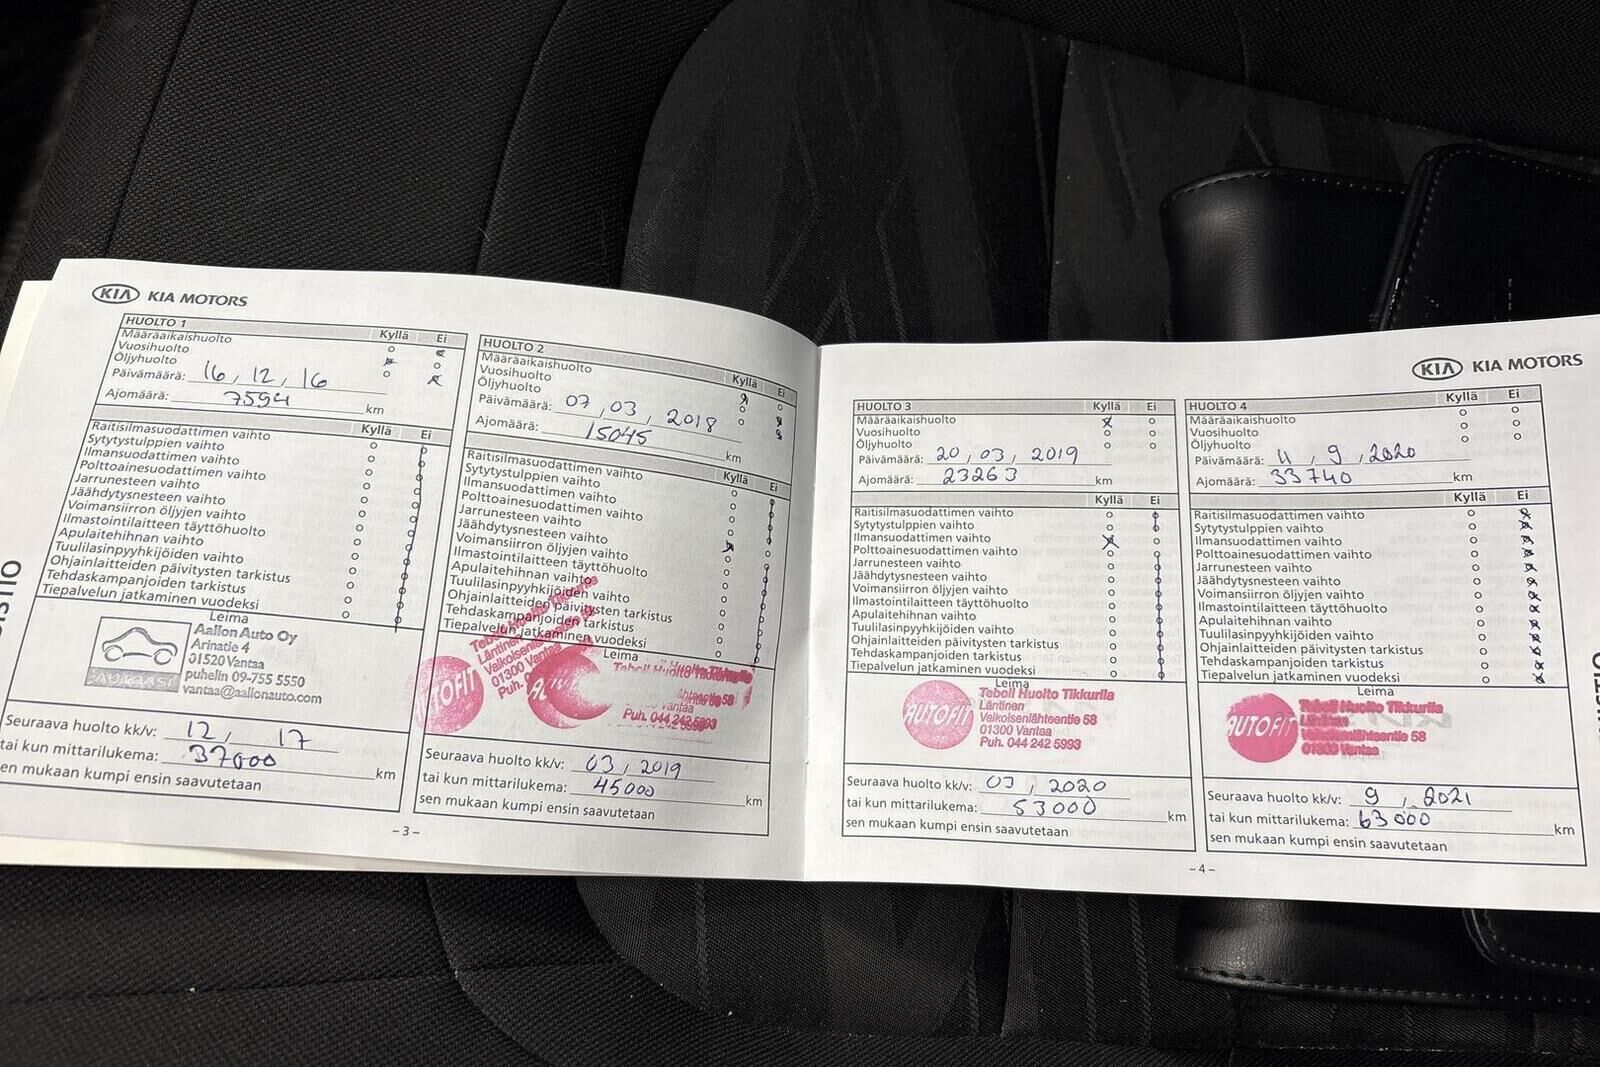 KIA KIA MOTORS
HUOLTO 1
Kyllä Ei
Määräaikaishuolto
Vuosihuolto
Öljyhuolto
Päivämäärä: 16, 12, 16
Ajomäärä: 7594 km
Kyllä Ei
Raitisilmasuodattimen vaihto
Sytytystulppien vaihto
Ilmansuodattimen vaihto
Polttoainesuodattimen vaihto
Jarrunesteen vaihto
Jäähdytysnesteen vaihto
Voimansiirron öljyjen vaihto
Ilmastointilaitteen täyttöhuolto
Apulaitehihnan vaihto
Tuulilasinpyyhkijöiden vaihto
Ohjainlaitteiden päivitysten tarkistus
Tehdaskampanjoiden tarkistus
Tiepalvelun jatkaminen vuodeksi
Leima
Aallon Auto Oy
Arinatie 4
01520 Vantaa
puhelin 09-755 5550
vantaa@aallonauto.com
AUTOASI
Seuraava huolto kk/v: 12, 17
tai kun mittarilukema: 37000 km
sen mukaan kumpi ensin saavutetaan
HUOLTO 2
Kyllä Ei
Määräaikaishuolto
Vuosihuolto
Öljyhuolto
Päivämäärä: 07, 03, 2018
Ajomäärä: 15045 km
Kyllä Ei
Raitisilmasuodattimen vaihto
Sytytystulppien vaihto
Ilmansuodattimen vaihto
Polttoainesuodattimen vaihto
Jarrunesteen vaihto
Jäähdytysnesteen vaihto
Voimansiirron öljyjen vaihto
Ilmastointilaitteen täyttöhuolto
Apulaitehihnan vaihto
Tuulilasinpyyhkijöiden vaihto
Ohjainlaitteiden päivitysten tarkistus
Tehdaskampanjoiden tarkistus
Tiepalvelun jatkaminen vuodeksi
Leima
Teboil Huolto Tikkurila
Läntinen
Valkoisenlähteentie 58
01300 Vantaa
Puh.
Teboil Huolto Tikkurila
Vantaa
Puh. 044 242 5993
Seuraava huolto kk/v: 03, 2019
tai kun mittarilukema: 45000 km
sen mukaan kumpi ensin saavutetaan
- 3 -
KIA KIA MOTORS
HUOLTO 3
Kyllä Ei
Määräaikaishuolto
Vuosihuolto
Öljyhuolto
Päivämäärä: 20, 03, 2019
Ajomäärä: 23263 km
Kyllä Ei
Raitisilmasuodattimen vaihto
Sytytystulppien vaihto
Ilmansuodattimen vaihto
Polttoainesuodattimen vaihto
Jarrunesteen vaihto
Jäähdytysnesteen vaihto
Voimansiirron öljyjen vaihto
Ilmastointilaitteen täyttöhuolto
Apulaitehihnan vaihto
Tuulilasinpyyhkijöiden vaihto
Ohjainlaitteiden päivitysten tarkistus
Tehdaskampanjoiden tarkistus
Tiepalvelun jatkaminen vuodeksi
Leima
AUTOFIT
Teboil Huolto Tikkurila
Läntinen
Valkoisenlähteentie 58
01300 Vantaa
Puh. 044 242 5993
Seuraava huolto kk/v: 03, 2020
tai kun mittarilukema: 53000 km
sen mukaan kumpi ensin saavutetaan
HUOLTO 4
Kyllä Ei
Määräaikaishuolto
Vuosihuolto
Öljyhuolto
Päivämäärä: 11, 9, 2020
Ajomäärä: 33740 km
Kyllä Ei
Raitisilmasuodattimen vaihto
Sytytystulppien vaihto
Ilmansuodattimen vaihto
Polttoainesuodattimen vaihto
Jarrunesteen vaihto
Jäähdytysnesteen vaihto
Voimansiirron öljyjen vaihto
Ilmastointilaitteen täyttöhuolto
Apulaitehihnan vaihto
Tuulilasinpyyhkijöiden vaihto
Ohjainlaitteiden päivitysten tarkistus
Tehdaskampanjoiden tarkistus
Tiepalvelun jatkaminen vuodeksi
Leima
AUTOFIT
Teboil Huolto Tikkurila
Läntinen
Valkoisenlähteentie 58
01300 Vantaa
Seuraava huolto kk/v: 9, 2021
tai kun mittarilukema: 63000 km
sen mukaan kumpi ensin saavutetaan
- 4 -